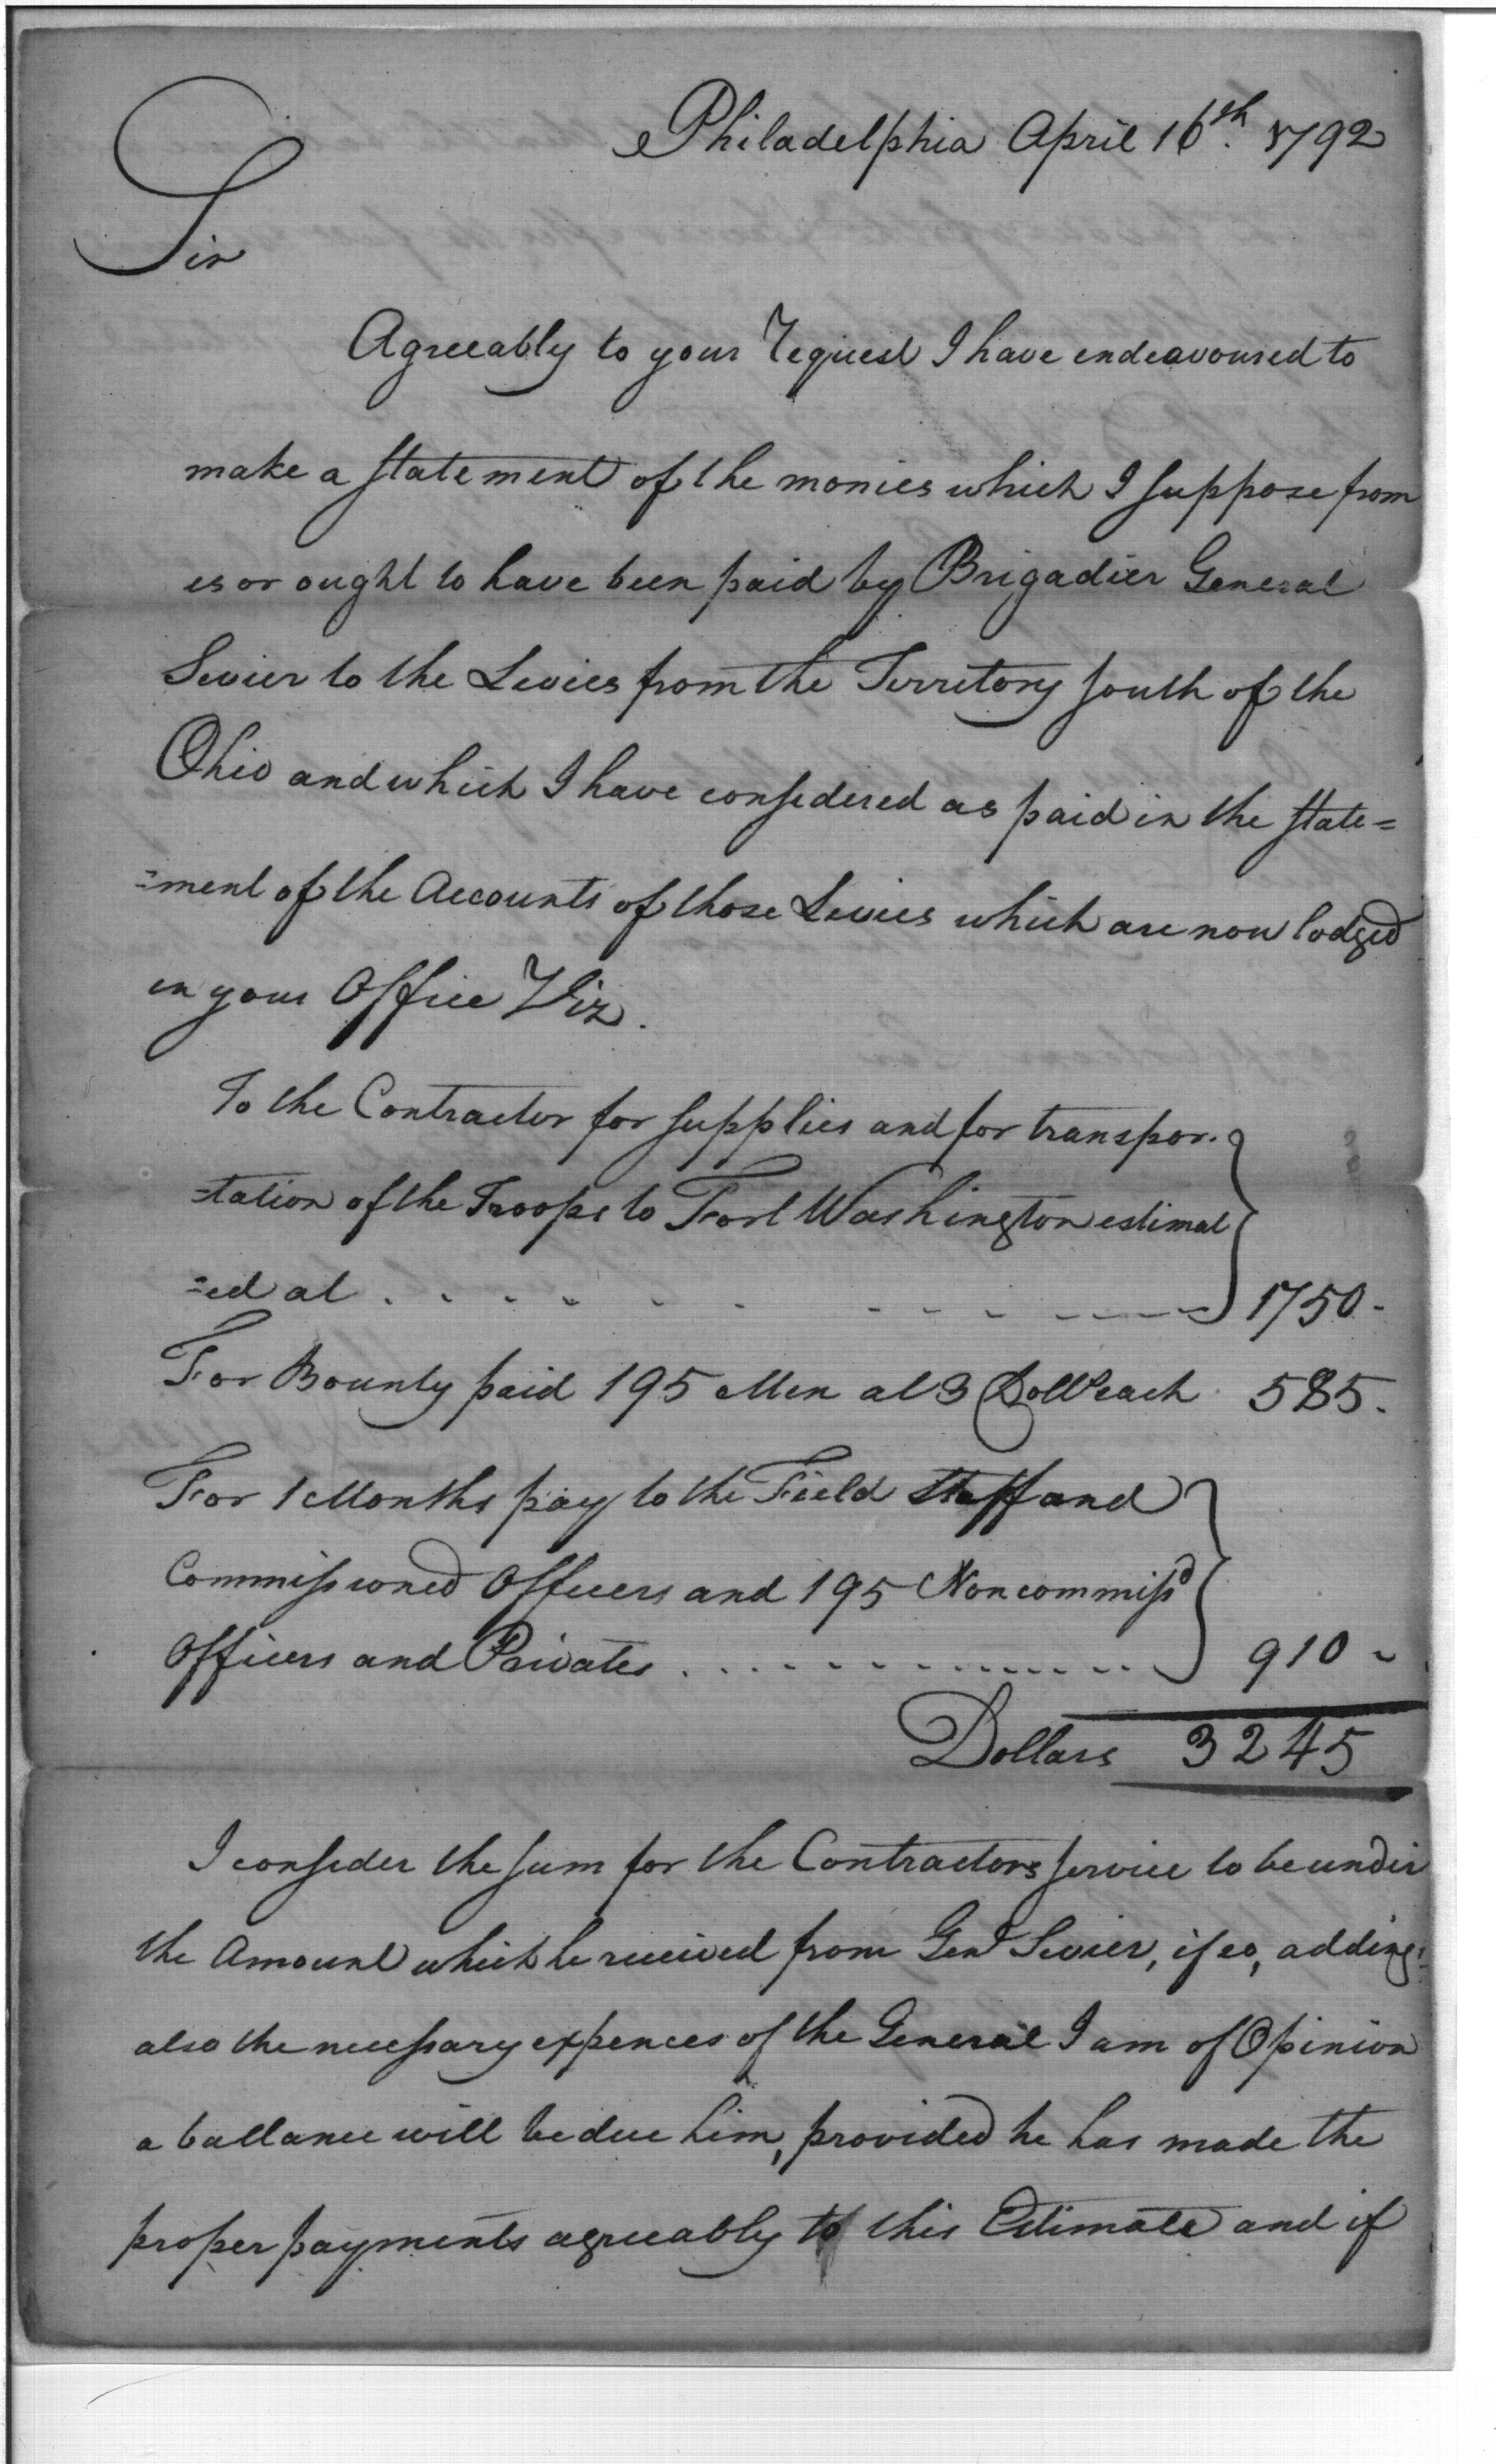 Philadelphia April 16th. 1792
Sir
Agreeably to your request I have endeavoured to
make a statement of the monies which I suppose from
es or ought to have been paid by Brigadier General
Sevier to the Levies from the Territory south of the
Ohio and which I have considered as paid in the state=
=ment of the Accounts of those Levies which are now lodged
in your Office Viz.
To the Contractor for supplies and for transpor-
-tation of the Troops to Fort Washington estimat
=ed at . . . . . . . . . . . . 1750-
For Bounty paid 195 Men at 3 Dolls each 585.
For 1 Months pay to the Field Staff and
Commissioned Officers and 195 Noncommissd
Officers and Privates . . . . . . . . . . . . 910 -
Dollars 3245
I consider the sum for the Contractors service to be under
the Amount which he received from Genl Sevier, if so, adding
also the necessary expences of the General I am of Opinion
a ballance will be due him, provided he has made the
proper payments agreeably to this Estimate and if